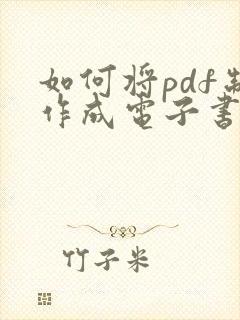 如何将pdf制
作成電子書
竹子米